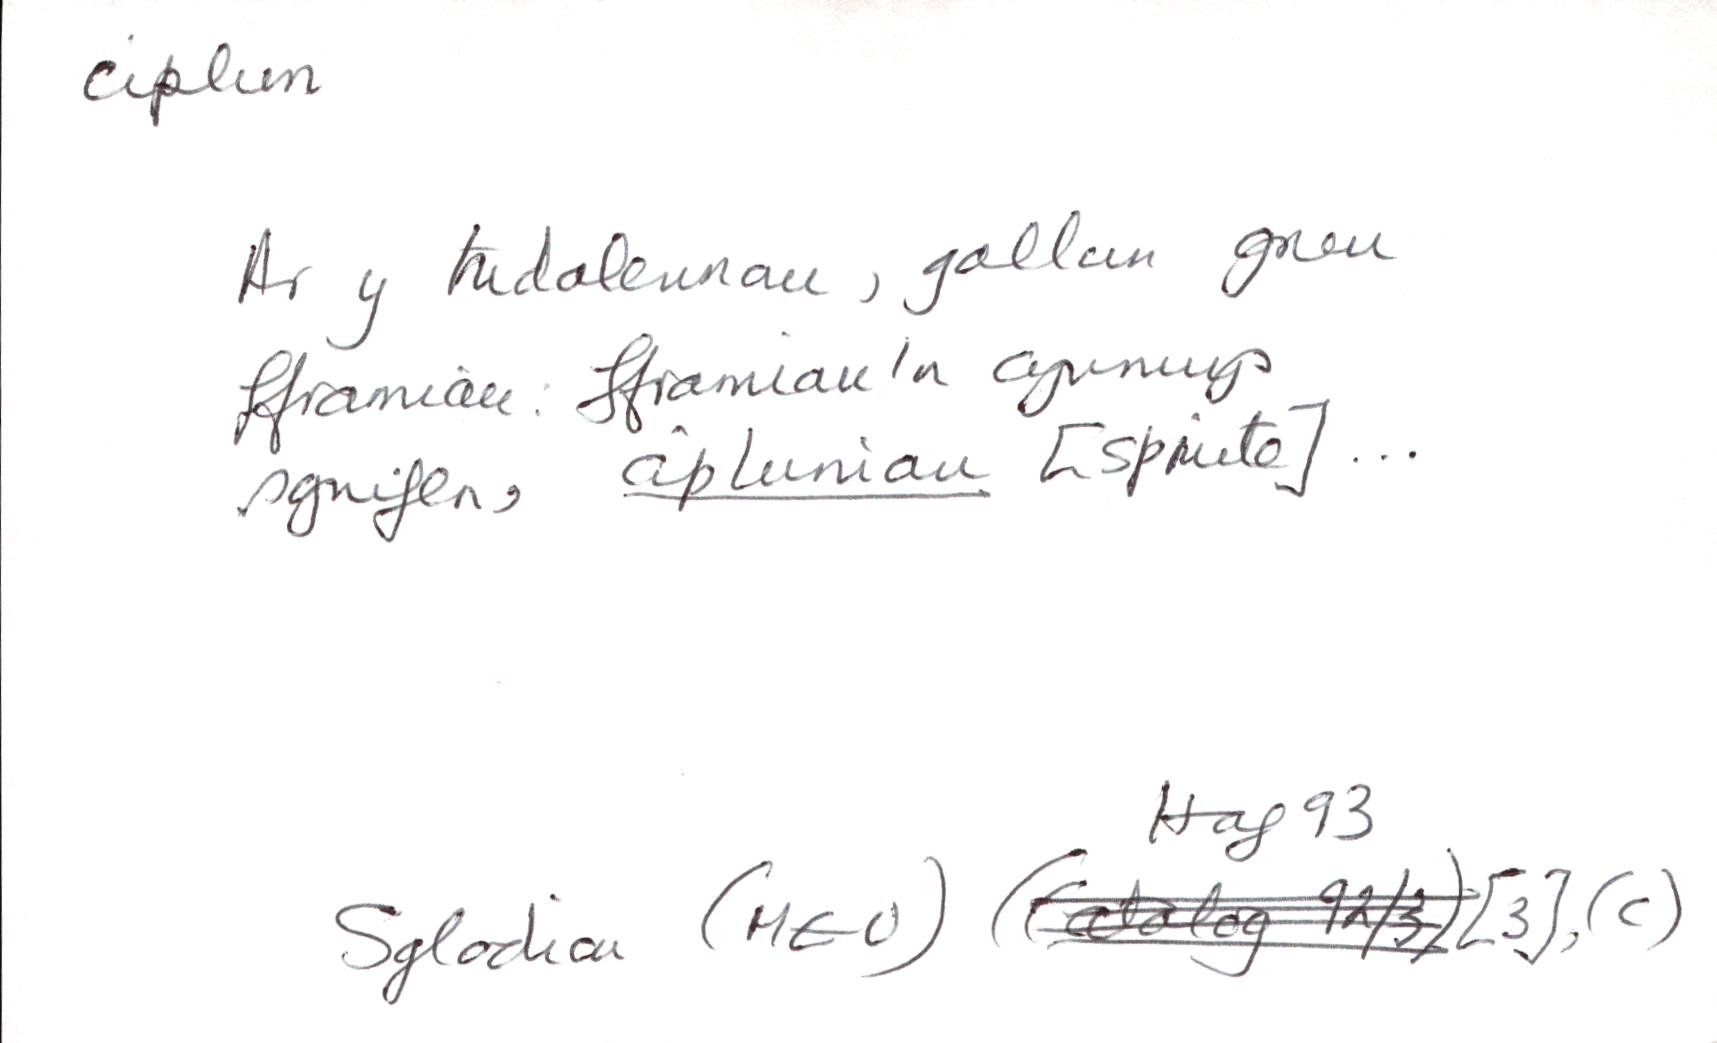 ciplun
Ar y tudalennau, gallwn greu
fframiau: fframiau'n cynnwys
sgrifen, cipluniau [sprite] ...
Haf 93
Sglodion (MEU) (Catalog 92/3) [3], (c)